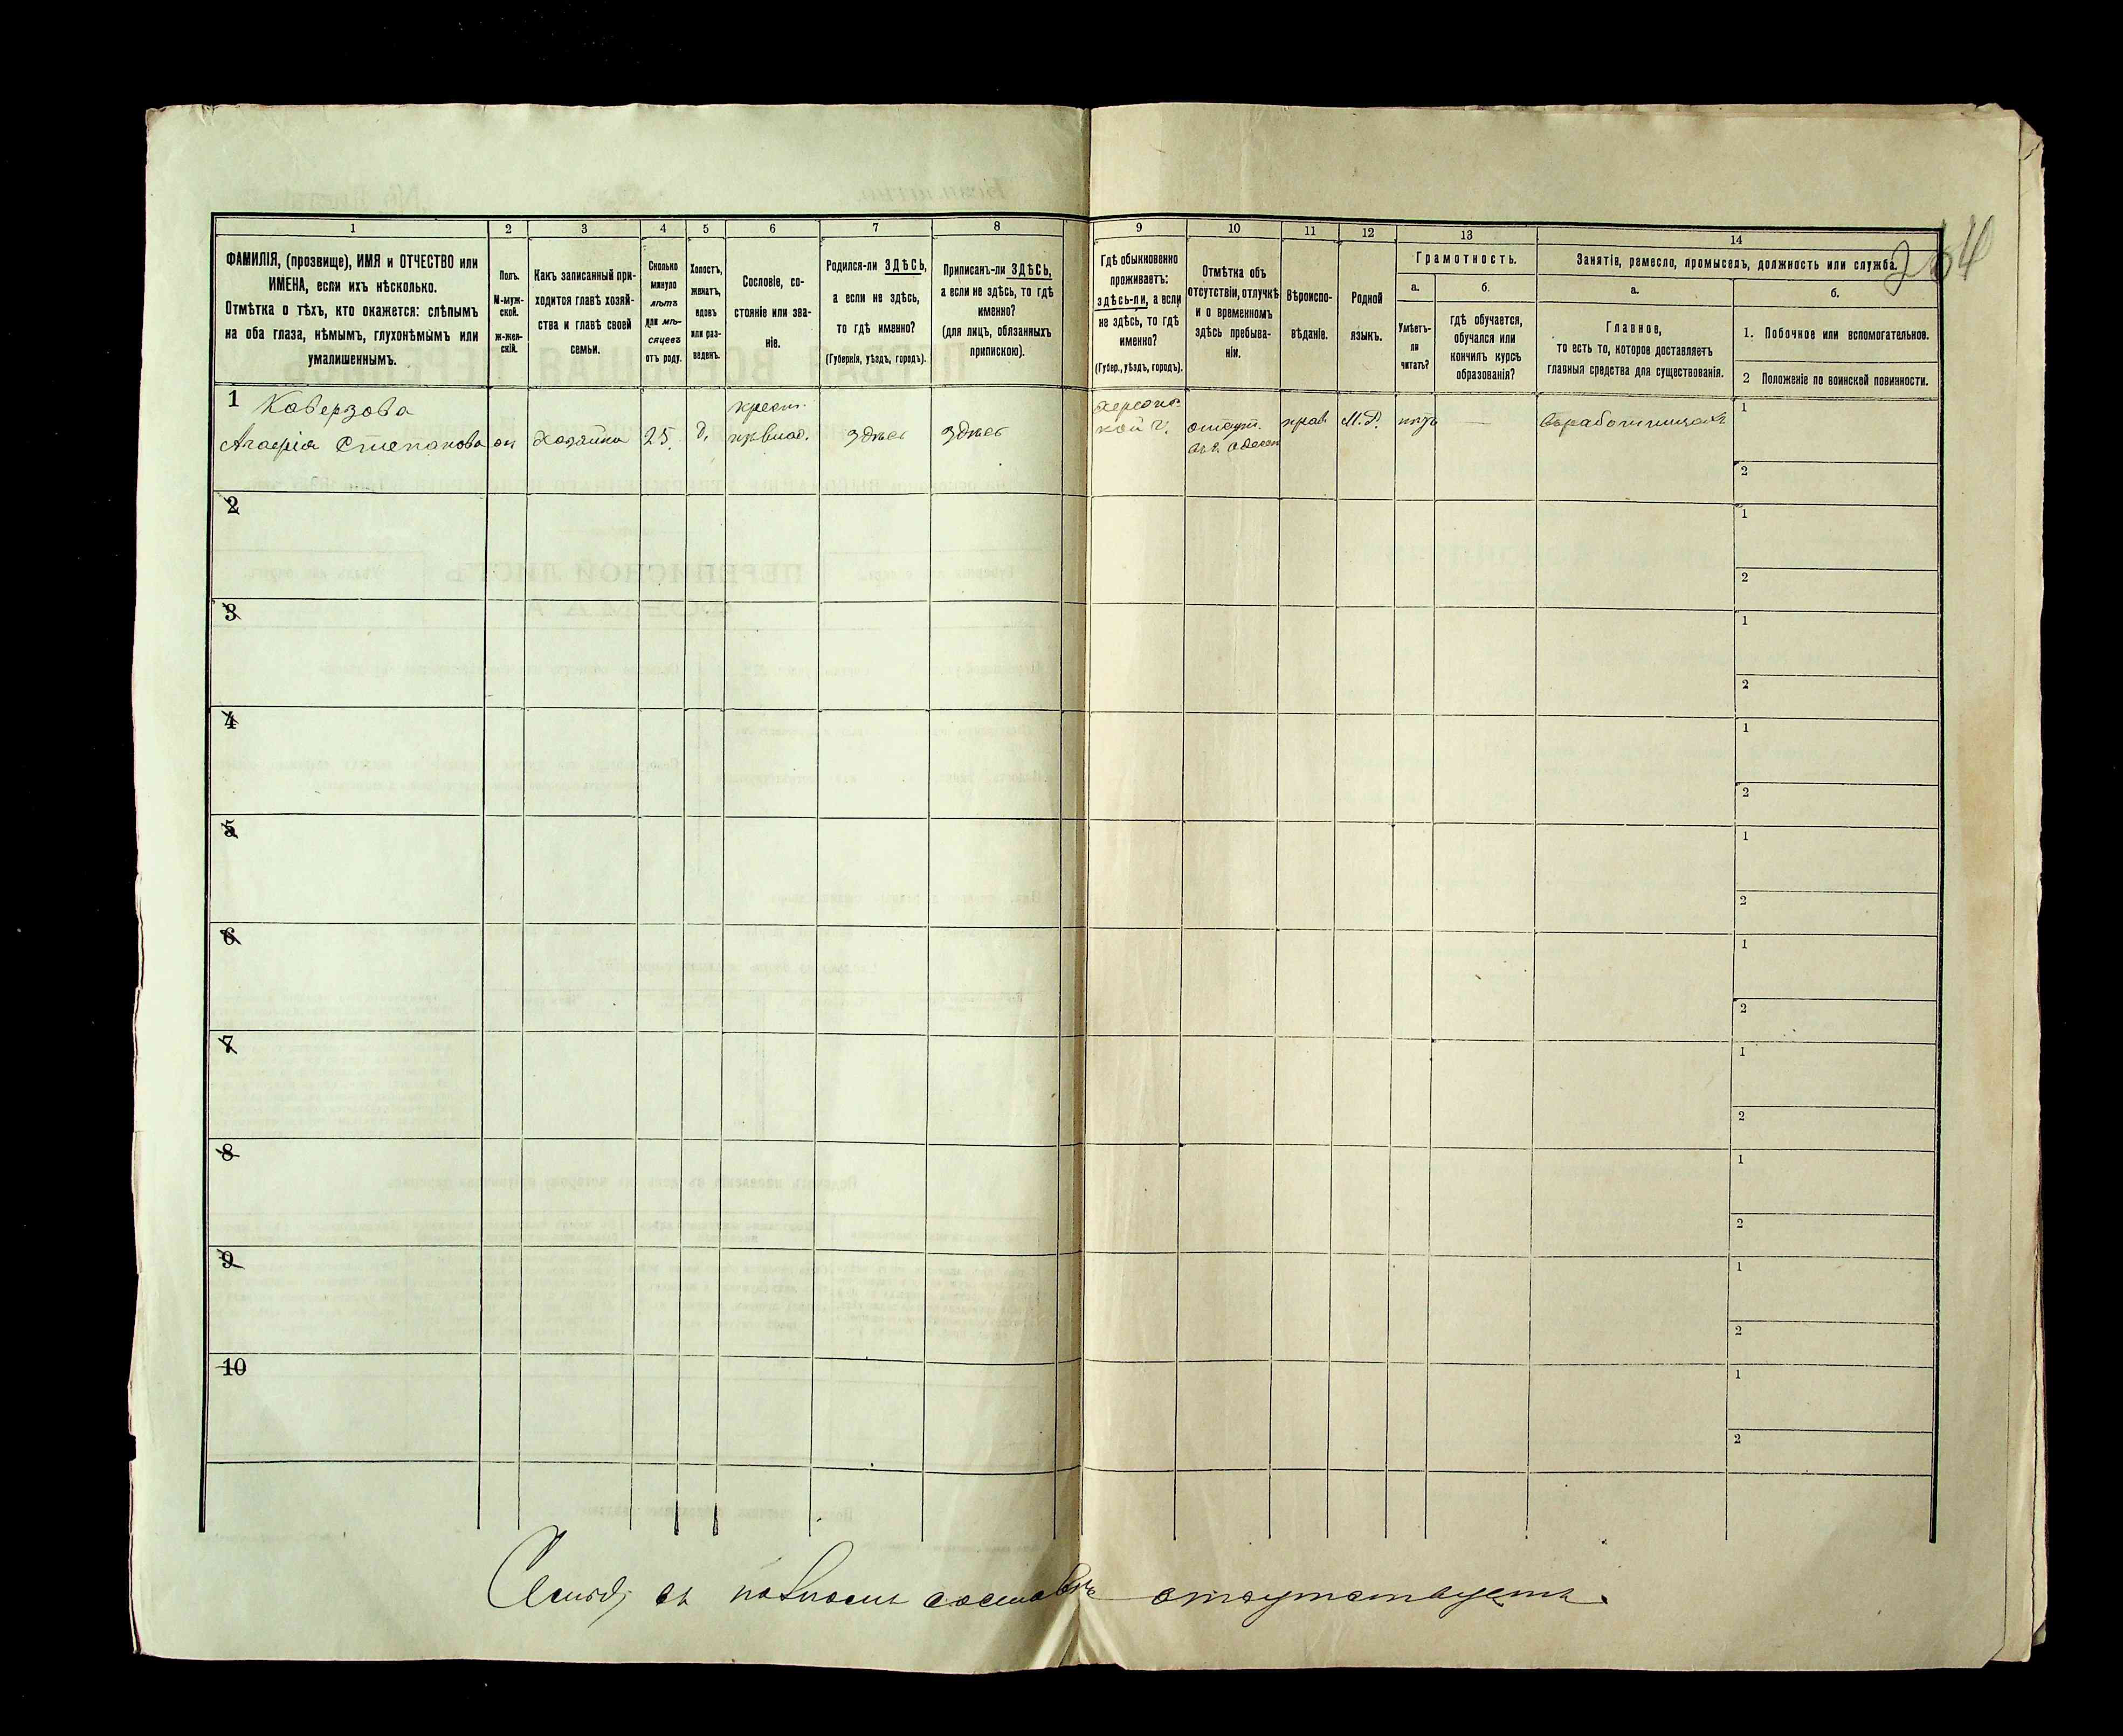 1
2
3
4
5
6
7
8
9
10
11
12
13
14
ФАМИЛІЯ, (прозвище), ИМЯ и ОТЧЕСТВО или
ИМЕНА, если ихъ нѣсколько.
Отмѣтка о тѣхъ, кто окажется: слѣпымъ
на оба глаза, нѣмымъ, глухонѣмымъ или
умалишеннымъ.
Полъ.
М-муж-
ской.
ж-жен-
скій.
Какъ записанный при-
ходится главѣ хозяй-
ства и главѣ своей
семьи.
Сколько
минуло
лѣтъ
или мѣ-
сяцевъ
отъ роду.
Холостъ,
женатъ,
вдовъ
или раз-
веденъ.
Сословіе, со-
стояніе или зва-
ніе.
Родился-ли ЗДѢСЬ,
а если не здѣсь,
то гдѣ именно?
(Губернія, уѣздъ, городъ).
Приписанъ-ли ЗДѢСЬ,
а если не здѣсь, то гдѣ
именно?
(для лицъ, обязанныхъ
припискою).
Гдѣ обыкновенно
проживаетъ:
здѣсь-ли, а если
не здѣсь, то гдѣ
именно?
(Губер., уѣздъ, городъ).
Отмѣтка объ
отсутствіи, отлучкѣ
и о временномъ
здѣсь пребыва-
ніи.
Вѣроиспо-
вѣданіе.
Родной
языкъ.
Грамотность.
а.
Умѣетъ-
ли
читать?
б.
гдѣ обучается,
обучался или
кончилъ курсъ
образованія?
Занятіе, ремесло, промыселъ, должность или служба.
а.
Главное,
то есть то, которое доставляетъ
главныя средства для существованія.
б.
1. Побочное или вспомогательное.
2 Положеніе по воинской повинности.
1 Каверзова
Агафія Степанова
ж
Хозяйка
25
д.
крест.
здѣсь
здѣсь
херсонс
кой г.
отсут.
въ г. Одессѣ
прав
М.Р.
нѣтъ
—
1
2
2
1
2
3
1
2
4
1
2
5
1
2
6
1
2
7
1
2
8
1
2
9
1
2
10
1
2
Семья въ полномъ составѣ отсутствуетъ.